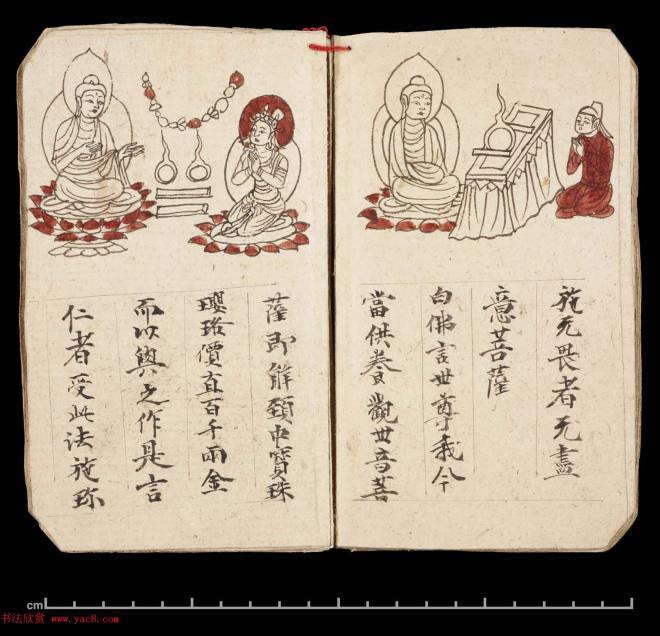 施无畏者无盡
意菩薩
白佛言世尊我今
當供養觀世音菩
薩即解頚中寶珠
瓔珞價直百千兩金
而以與之作是言
仁者受此法施珎
cm
书法欣赏 www.yac8.com